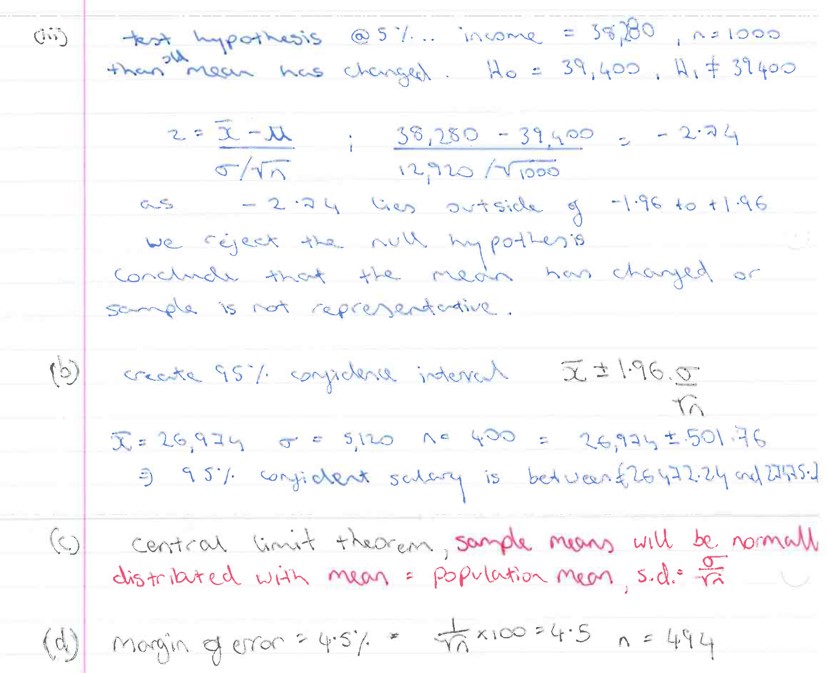 (iii) test hypothesis @ 5%... income = 38,280, n=1000
than mean has changed. H₀ = 39,400, H₁ ≠ 39400
z = (x̄ - μ) / (σ/√n) ; (38,280 - 39,400) / (12,920/√1000) = -2.74
as -2.74 lies outside of -1.96 to +1.96
we reject the null hypothesis
conclude that the mean has changed or
sample is not representative.
(b) create 95% confidence interval x̄ ± 1.96 . σ/√n
x̄ = 26,974 σ = 5,120 n = 400 = 26,974 ± 501.76
⇒ 95% confident salary is between £26472.24 and 27475.7
(c) central limit theorem, sample means will be normall
distributed with mean = population mean, s.d. = σ/√n
(d) margin of error = 4.5% = 1/√n ×100 = 4.5 n = 494